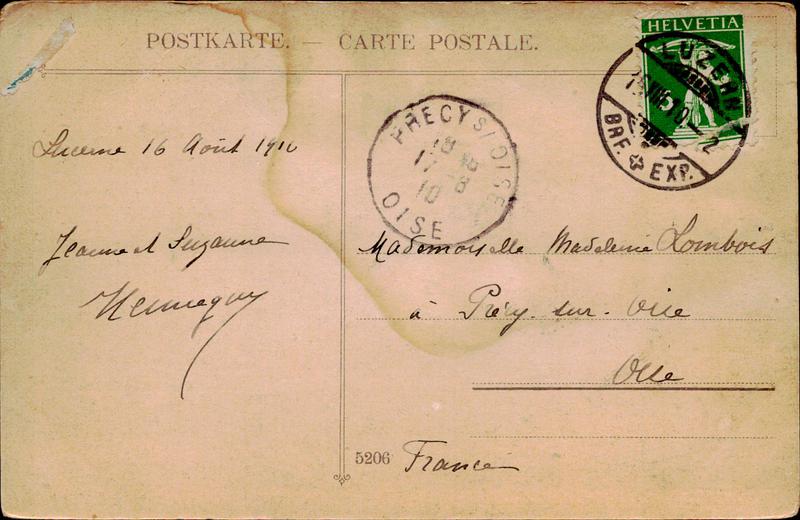 POSTKARTE. — CARTE POSTALE.
HELVETIA
5
LUZERN
10 - 2
BRF. EXP.
PRECY S/ OISE
18 45
17 - 8
10
OISE
Lucerne 16 Août 1910
Jeanne et Suzanne
Henneguy
Mademoiselle Madeleine Lombois
à Précy-sur-Oise
Oise
France
5206